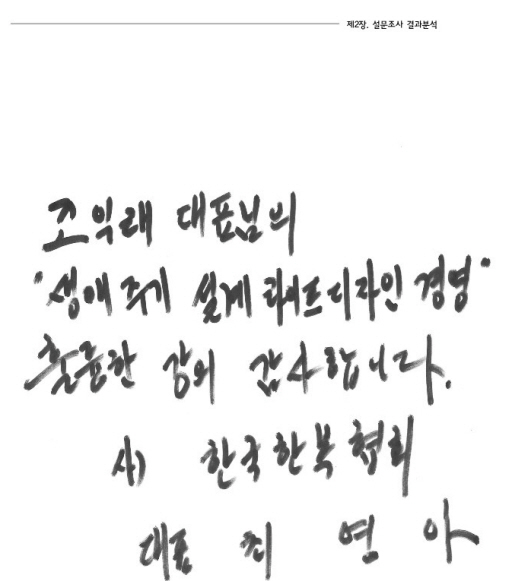 제2장. 설문조사 결과분석
조익래 대표님의
"생애 주기 설계 라이프디자인 경영"
훌륭한 강의 감사합니다.
사) 한국한복협회
대표 최 연 아